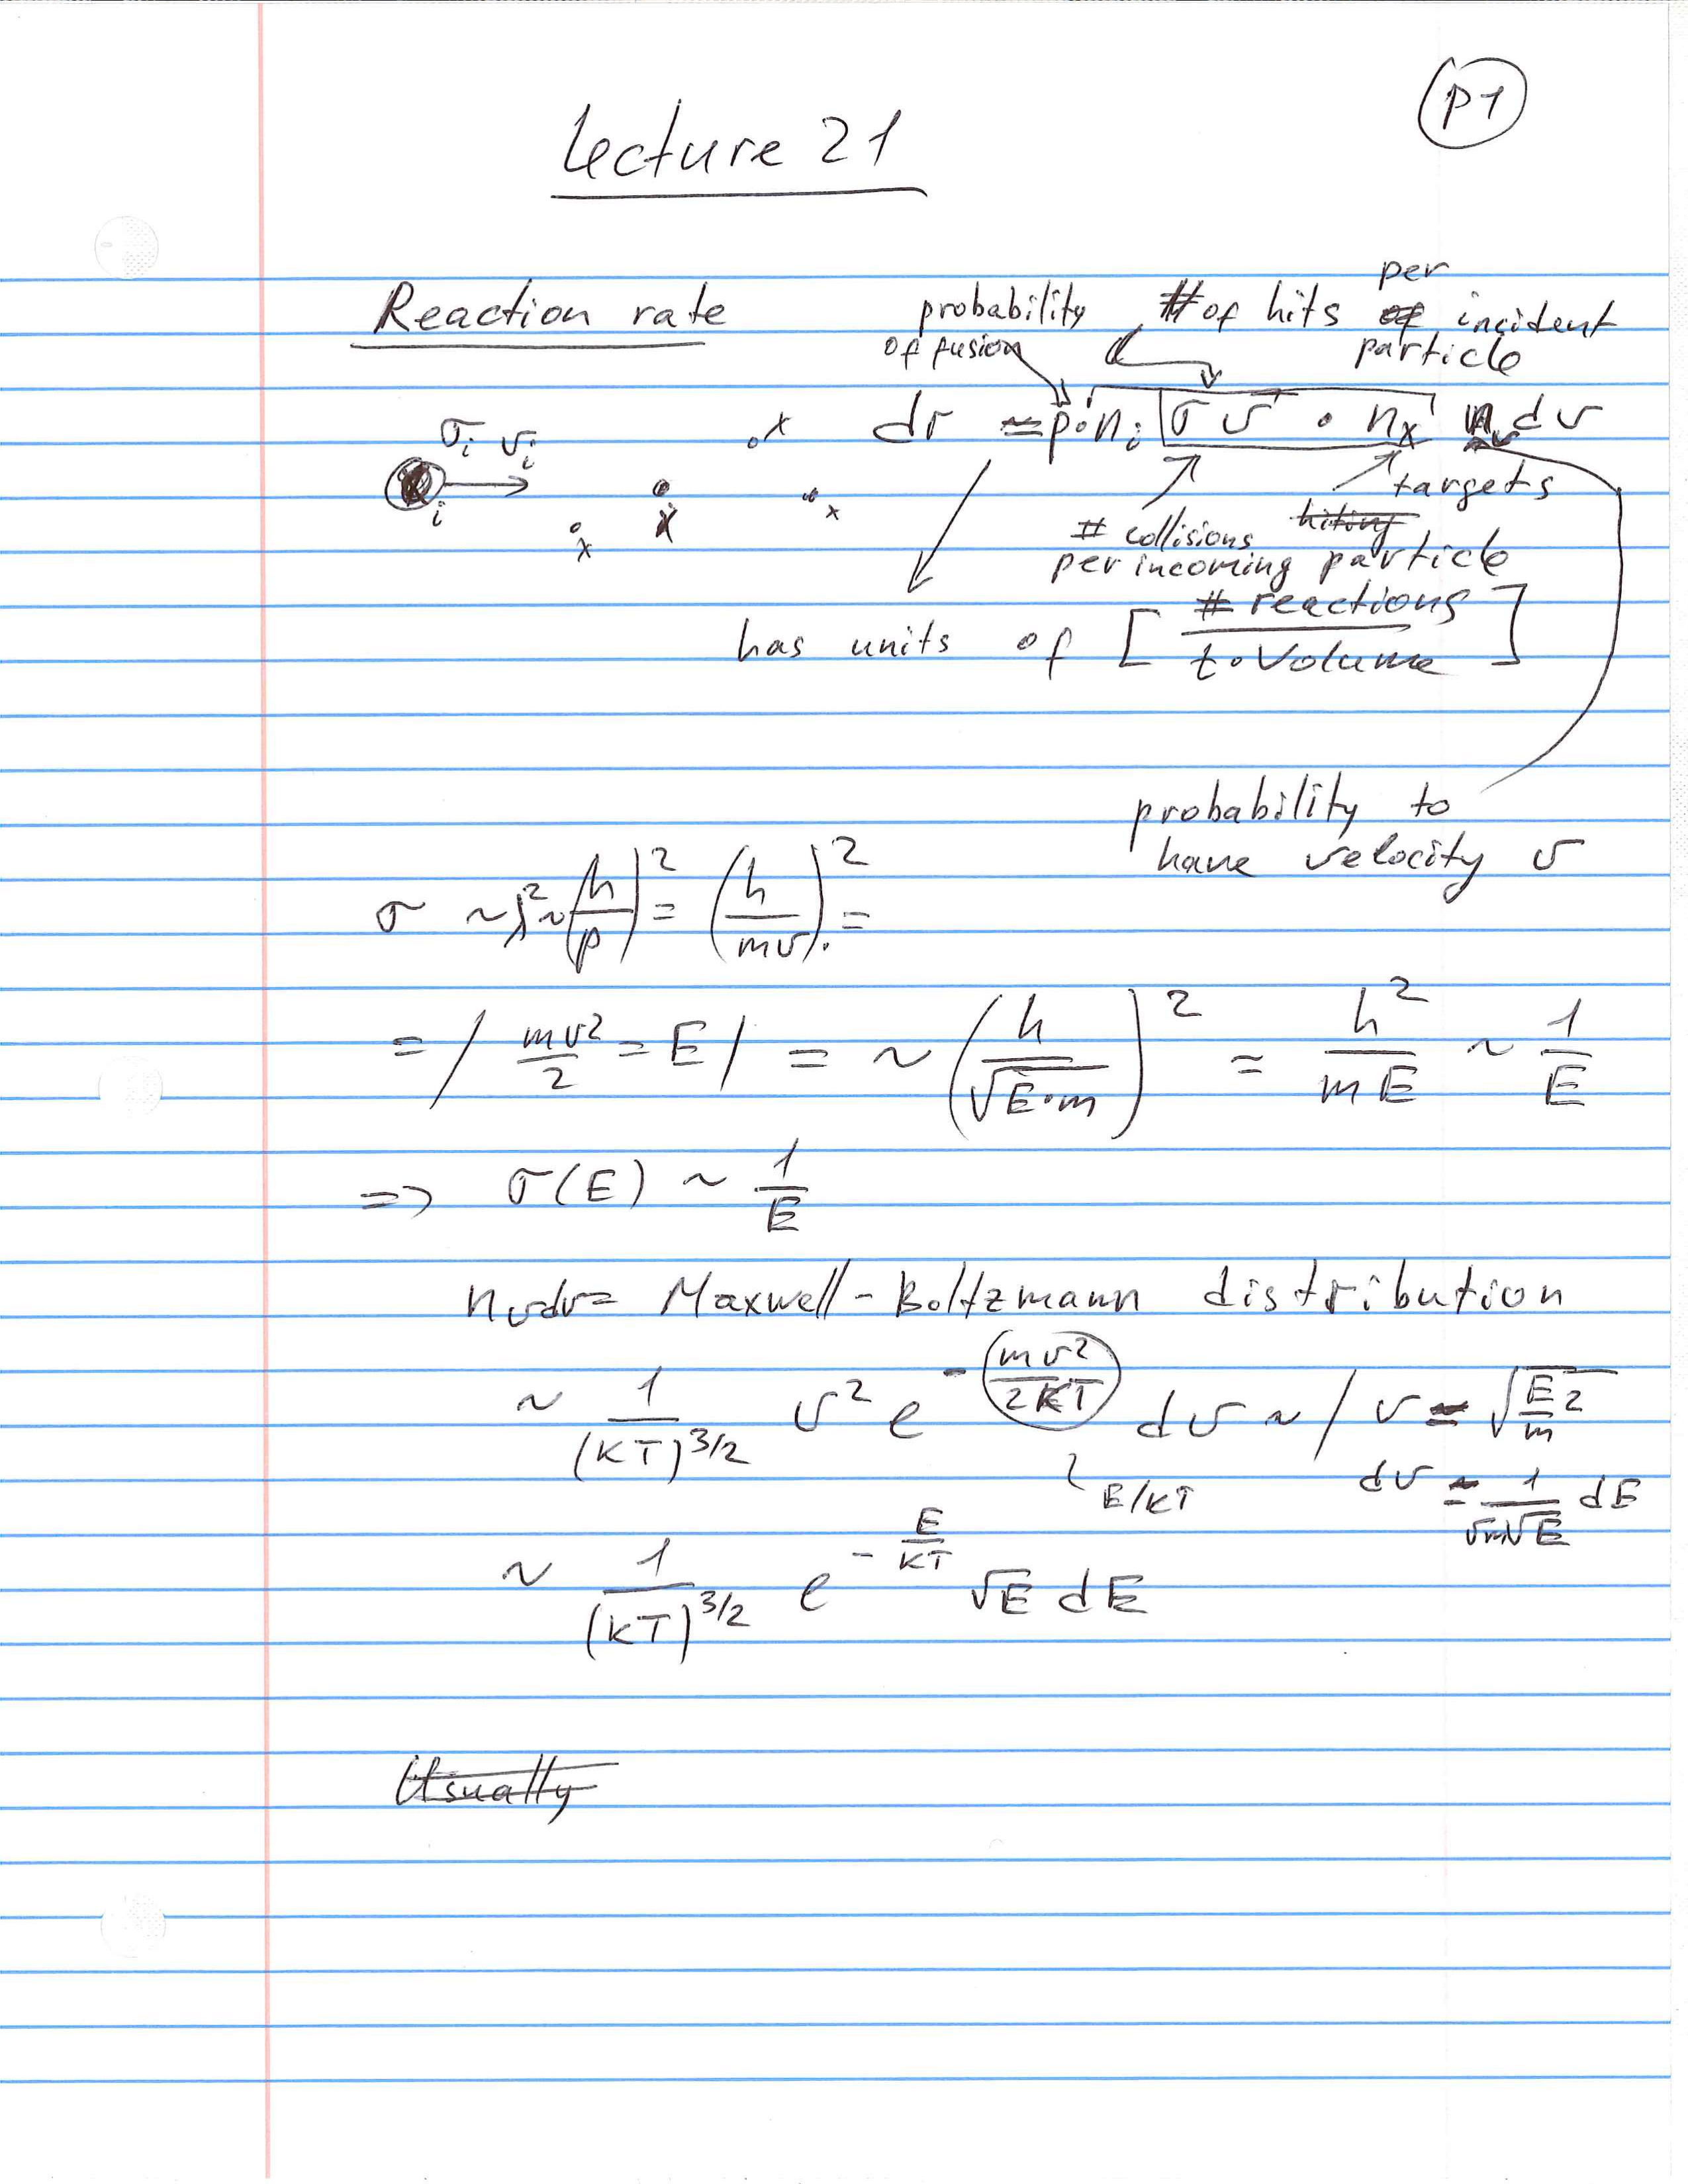 p1
Lecture 21
Reaction rate
probability of fusion
# of hits per incident particle
σi vi
i
x
x
x
x
dr = p·ni σv · nx nv dv
targets
# collisions
per incoming particle
has units of [ # reactions / t·Volume ]
probability to
have velocity v
σ ~ λ² ~ (h/p)² = (h/mv)² =
= / mv²/2 = E / = ~ (h/√E·m)² = h²/mE ~ 1/E
=> σ(E) ~ 1/E
nvdv = Maxwell-Boltzmann distribution
~ 1/(kT)^3/2 v² e^-(mv²/2kT) dv ~ / v = √(E/m 2)
E/kT
dv = 1/(√m√E) dE
~ 1/(kT)^3/2 e^-E/kT √E dE
Usually